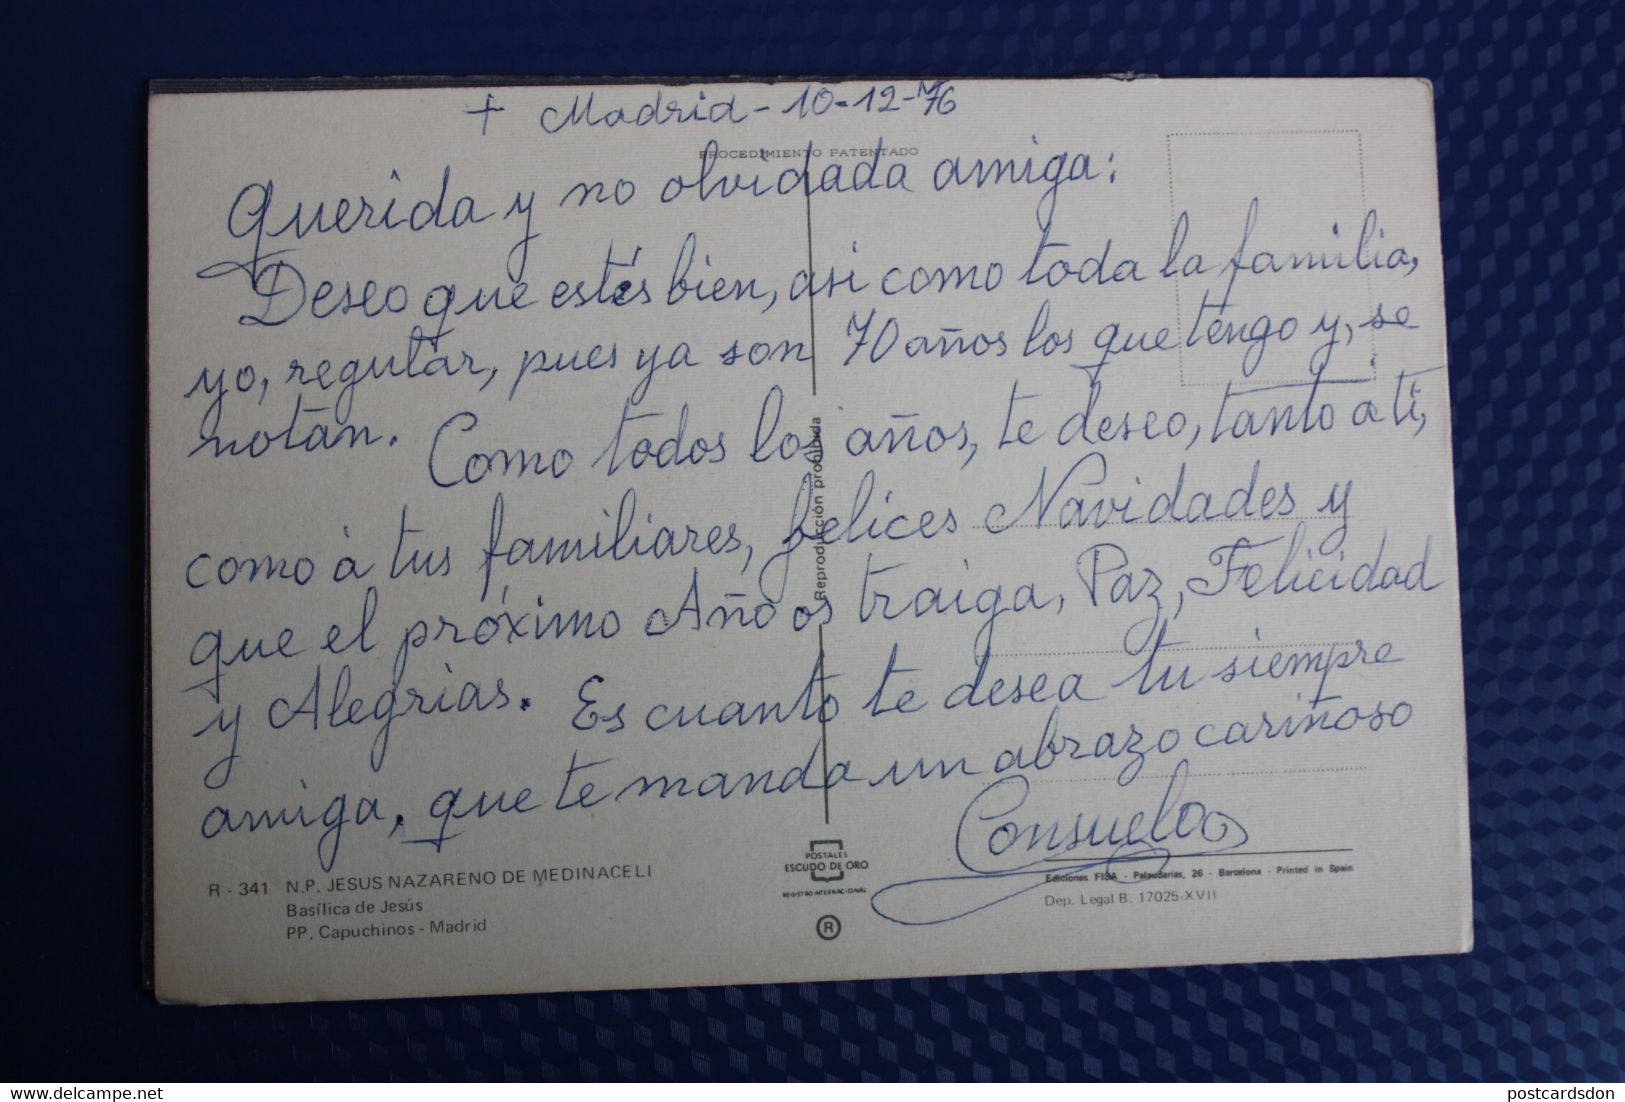 + Madrid - 10-12-76
PROCEDIMIENTO PATENTADO
Querida y no olvidada amiga:
Deseo que estés bien, asi como toda la familia,
yo, regular, pues ya son 70 años los que tengo y, se
notan. Como todos los años, te deseo, tanto á ti,
como á tus familiares, felices Navidades y
que el próximo Año os traiga, Paz, Felicidad
y Alegrias. Es cuanto te desea tu siempre
amiga, que te manda un abrazo cariñoso
Consuelo
Reproducción prohibida
R - 341 N.P. JESUS NAZARENO DE MEDINACELI
Basílica de Jesús
PP. Capuchinos - Madrid
POSTALES
ESCUDO DE ORO
REGISTRO INTERNACIONAL
R
Ediciones FISA - Palaudarias, 26 - Barcelona - Printed in Spain
Dep. Legal B. 17025-XVII
https://www.delcampe.net
postcardsdon